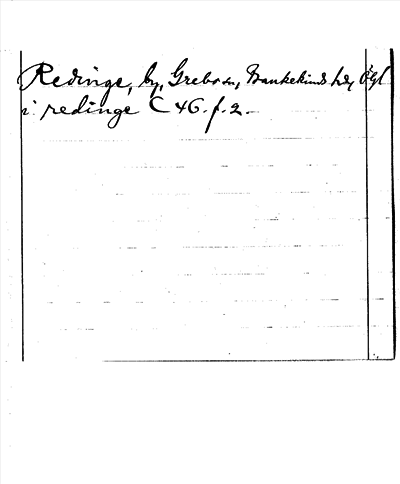 Redinge, by, Grebo sn, Bankekinds hd, Ögl
i redinge C 46. f. 2.